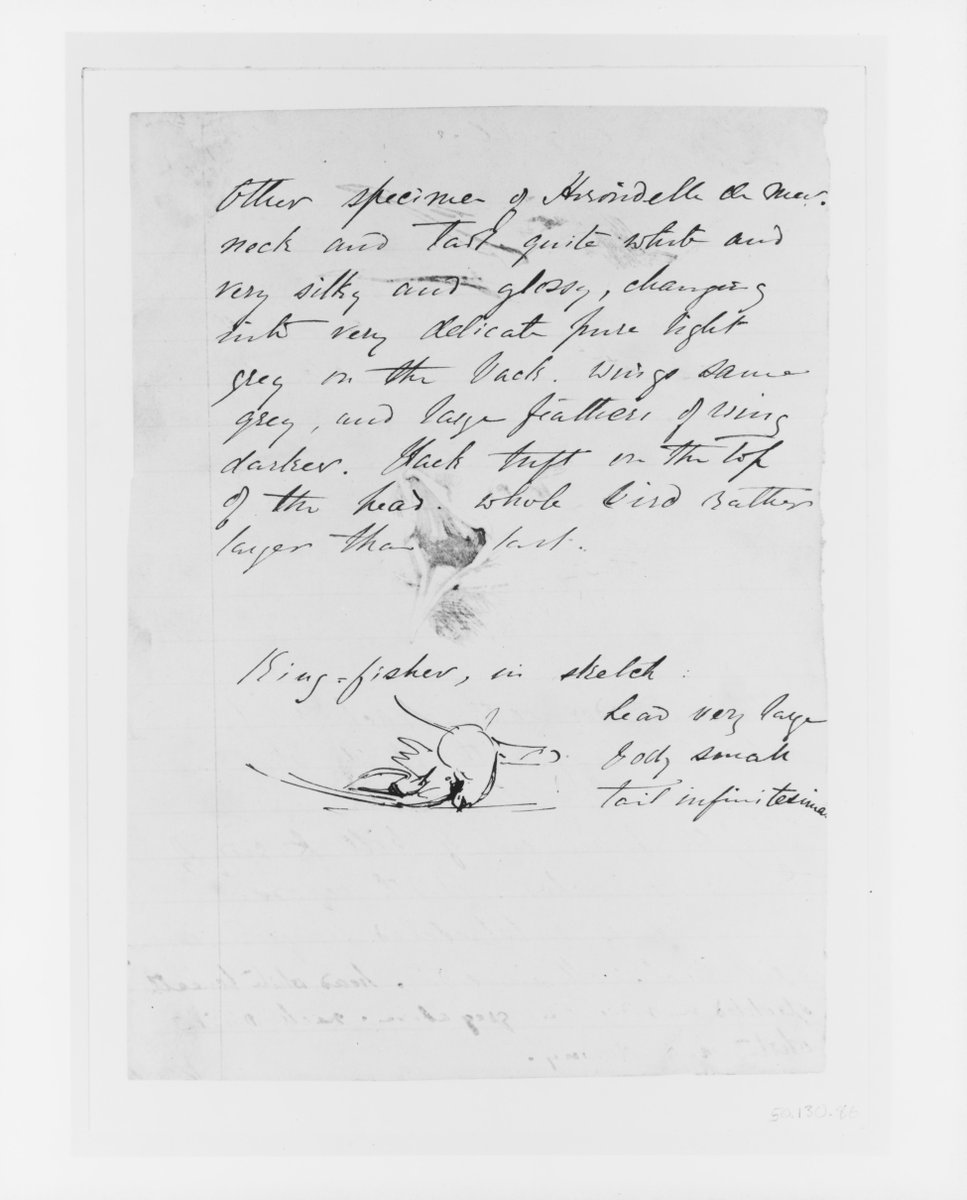 Other specimen of Hirondelle de Mer.
neck and tail quite white and
very silky and glossy, changing
into very delicate pure light
grey on the back. Wings same
grey, and large feathers of wing
darker. Black tuft on the top
of the head. whole bird rather
larger than last.
King-fisher, in sketch:
head very large
body small
tail infinitesimal
50.130.86